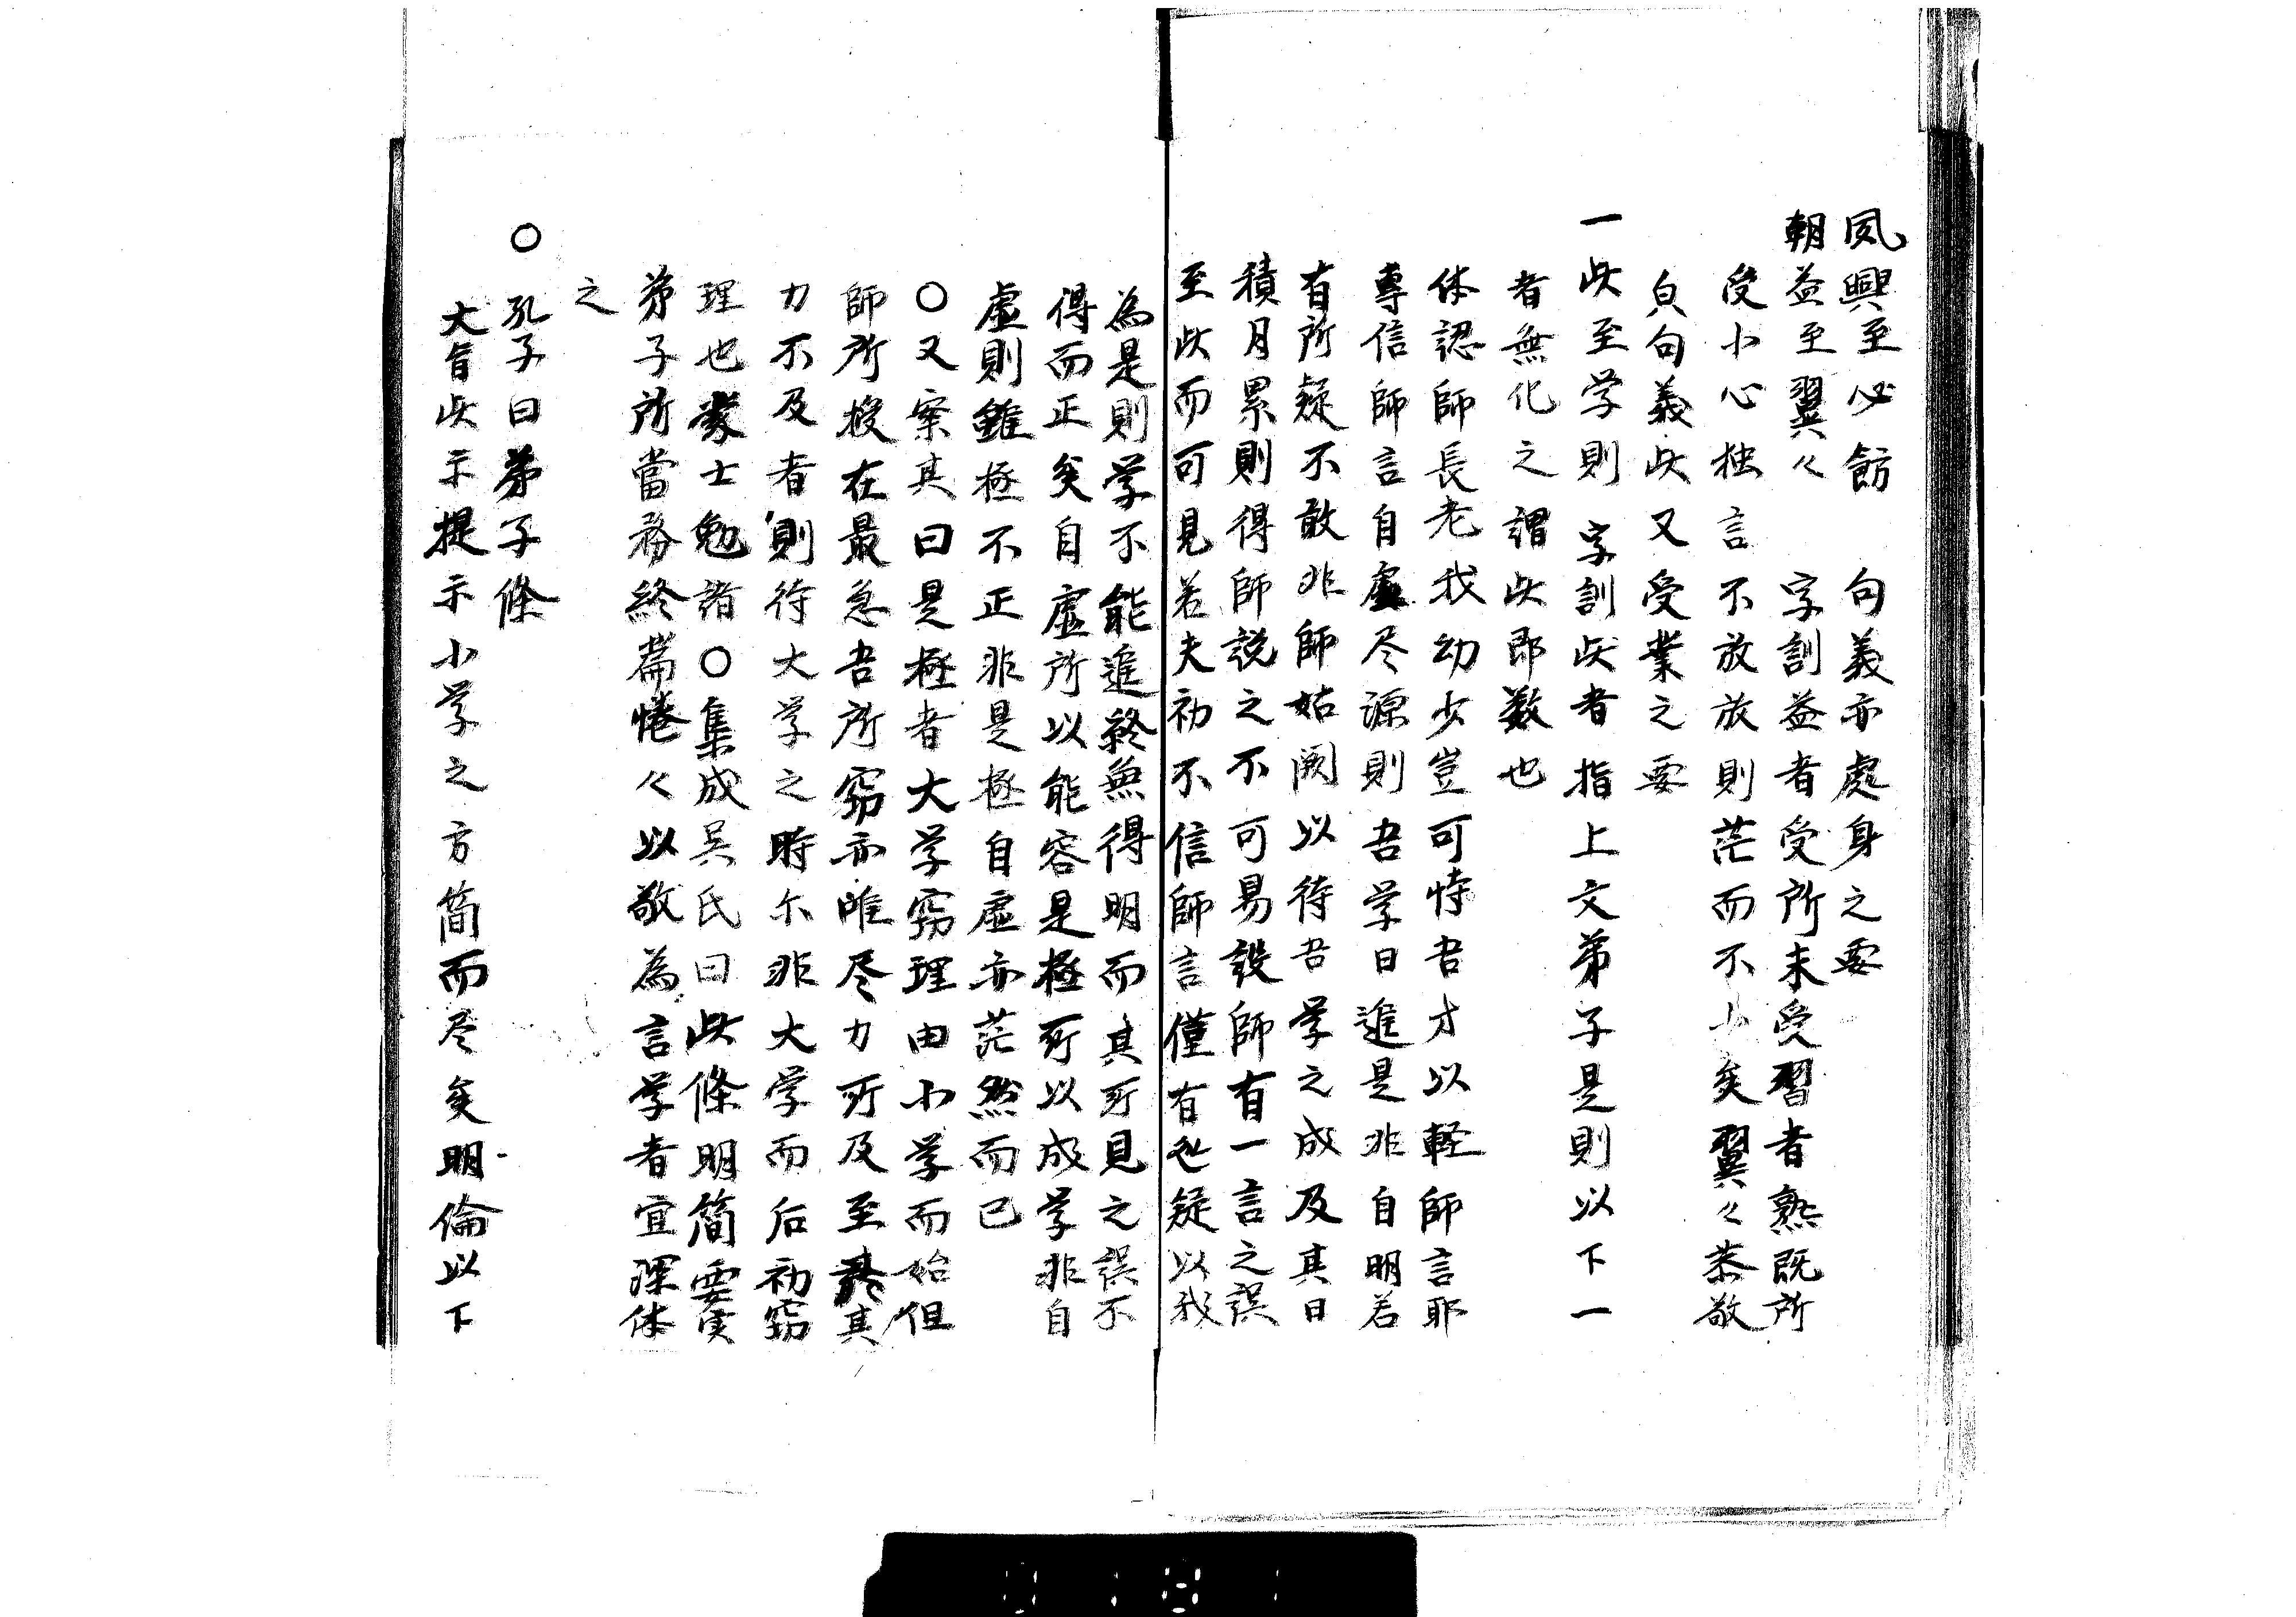 夙興至必飭　句義亦處身之要
朝益至翼々　字訓益者受所未受習者熟既所
受小心独言不放放則茫而不小矣翼々恭敬
皃句義此又受業之要
一此至学則　字訓此者指上文弟子是則以下一
者無化之謂此即数也
体認師長老我幼少豈可恃吾才以軽師言耶
專信師言自虚尽源則吾学日進是非自明若
有所疑不敢非師姑闕以待吾学之成及其日
積月累則得師説之不可易設師有一言之誤
至此而可見若夫初不信師言僅有疑以我
為是則学不能進終無得明而其所見之誤不
得而正矣自虚所以能容是極所以成学非自
虚則雖極不正非是極自虚亦茫然而已
〇又案其曰是極者大学窮理由小学而始但
師所授在最急吾所窮亦唯尽力所及至其
力不及者則待大学之時尓非大学而后初窮
理也蒙士勉諸〇集成呉氏曰此條明簡要実
弟子所當務終篇惓々以敬為言学者宜深体
之
〇孔子曰弟子條
大旨此示提示小学之方簡而尽矣明倫以下